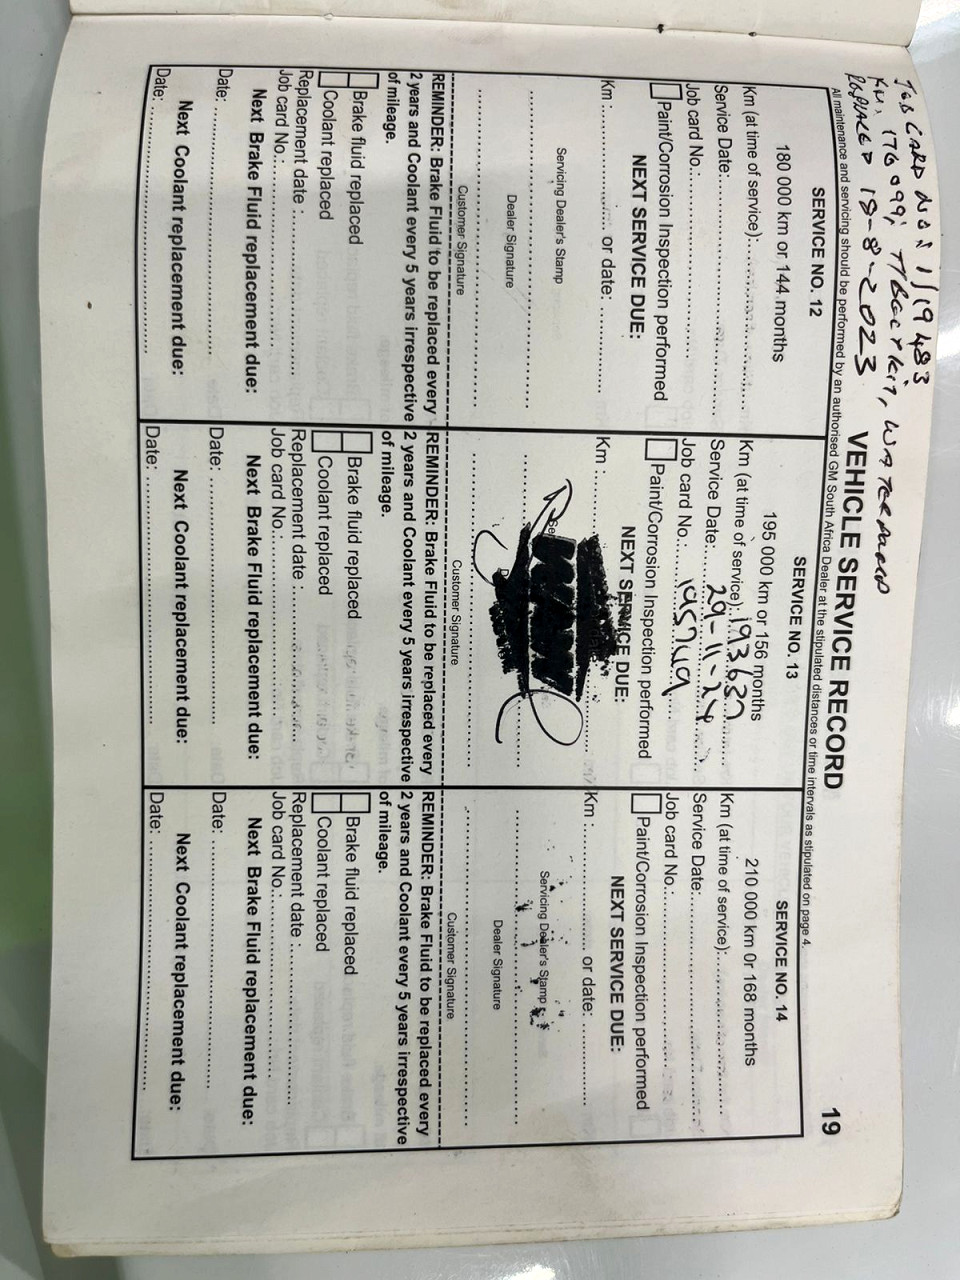 JOB CARD NO: 1/19483
KM, 176099; T/BELT KIT, WATERPUMP
REPLACED 18-8-2023
VEHICLE SERVICE RECORD
19
All maintenance and servicing should be performed by an authorised GM South Africa Dealer at the stipulated distances or time intervals as stipulated on page 4.
SERVICE NO. 12
180 000 km or 144 months
Km (at time of service):
Service Date:
Job card No.:
Paint/Corrosion Inspection performed
NEXT SERVICE DUE:
Km : or date:
Servicing Dealer's Stamp
Dealer Signature
Customer Signature
REMINDER: Brake Fluid to be replaced every
2 years and Coolant every 5 years irrespective
of mileage.
Brake fluid replaced
Coolant replaced
Replacement date :
Job card No.:
Next Brake Fluid replacement due:
Date:
Next Coolant replacement due:
Date:
SERVICE NO. 13
195 000 km or 156 months
Km (at time of service): 193630
Service Date: 29-11-24
Job card No.: 195749
Paint/Corrosion Inspection performed
NEXT SERVICE DUE:
Km :
Customer Signature
REMINDER: Brake Fluid to be replaced every
2 years and Coolant every 5 years irrespective
of mileage.
Brake fluid replaced
Coolant replaced
Replacement date :
Job card No.:
Next Brake Fluid replacement due:
Date:
Next Coolant replacement due:
Date:
SERVICE NO. 14
210 000 km 0r 168 months
Km (at time of service):
Service Date:
Job card No.:
Paint/Corrosion Inspection performed
NEXT SERVICE DUE:
Km : or date:
Servicing Dealer's Stamp
Dealer Signature
Customer Signature
REMINDER: Brake Fluid to be replaced every
2 years and Coolant every 5 years irrespective
of mileage.
Brake fluid replaced
Coolant replaced
Replacement date :
Job card No.:
Next Brake Fluid replacement due:
Date:
Next Coolant replacement due:
Date: